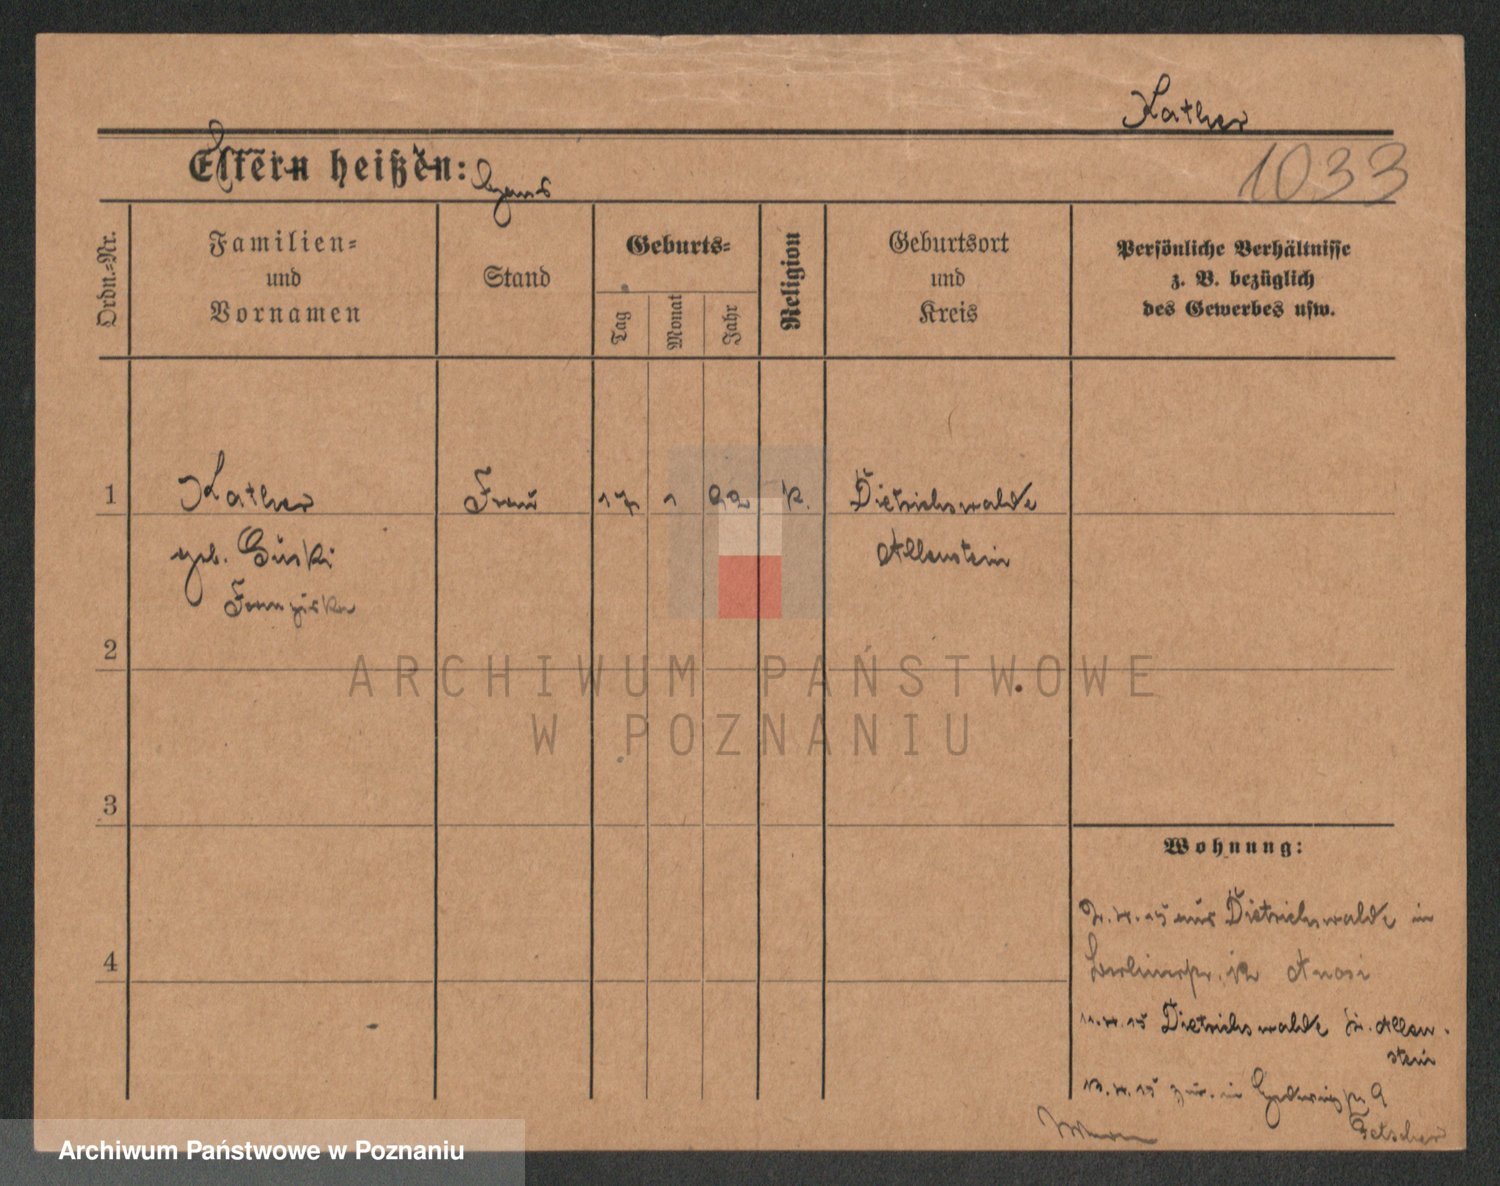 Kather
Eltern heißen:
1033
Ordn.=Nr.
Familien=
und
Vornamen
Stand
Geburts=
Tag
Monat
Jahr
Religion
Geburtsort
und
Kreis
Persönliche Verhältnisse
z. B. bezüglich
des Gewerbes usw.
1
Kather
Frau
17
1
92
k.
Dietrichswalde
geb. Guski
Allenstein
Franziska
2
ARCHIWUM PAŃSTWOWE
W POZNANIU
3
Wohnung:
15 aus Dietrichswalde in
4
Berlinerstr. 12
15 Dietrichswalde Kr. Allen-
stein
15 zur. in Hedwigstr 9
Archiwum Państwowe w Poznaniu